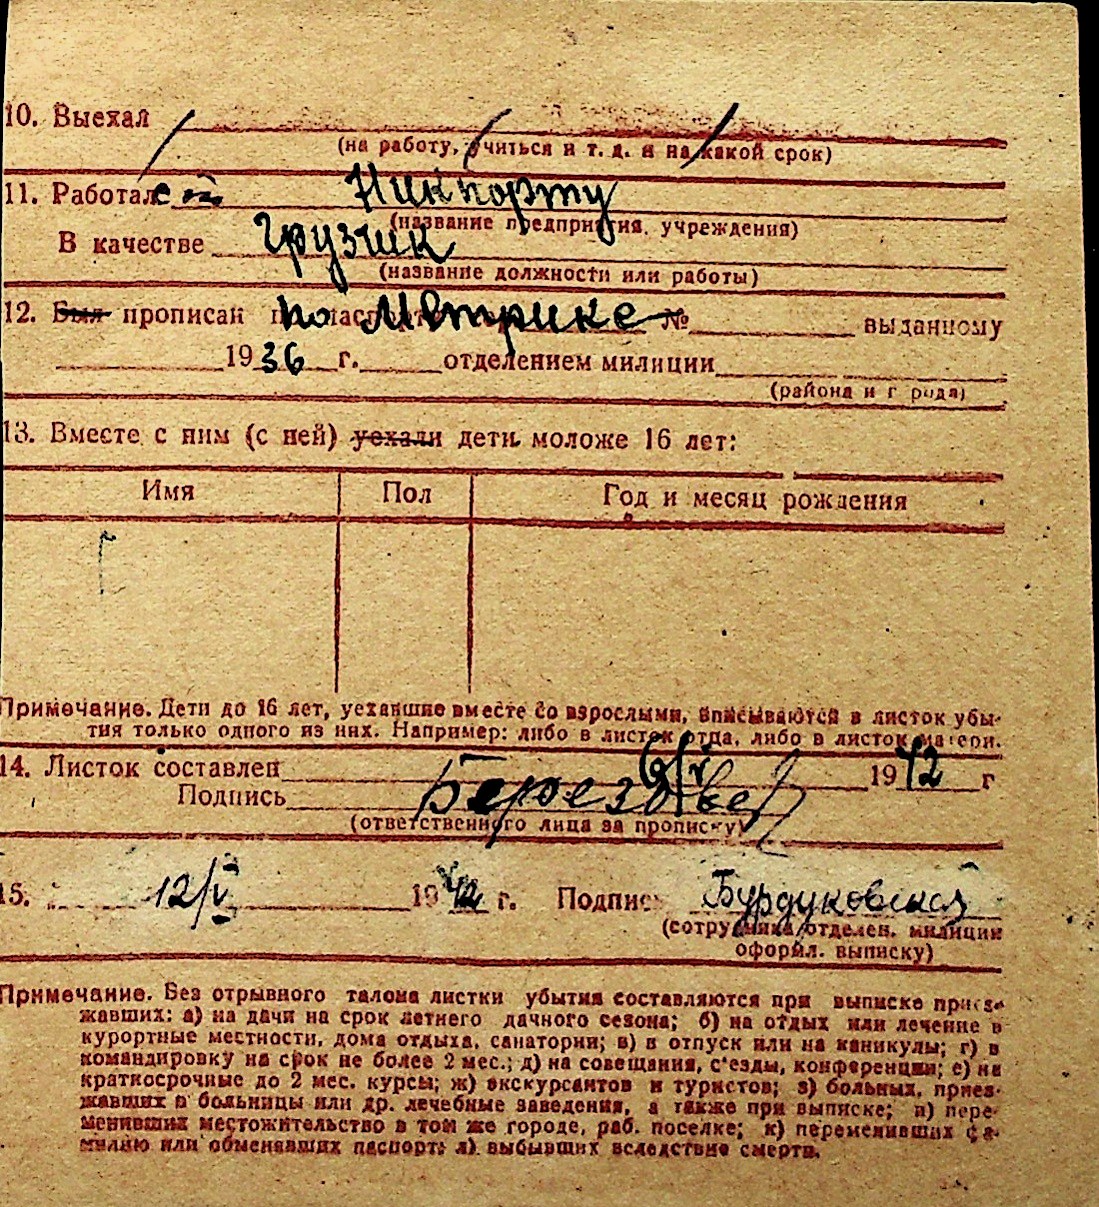 10. Выехал
(на работу, учиться и т. д. и на какой срок)
11. Работал Никпорту
(название предприятия, учреждения)
В качестве грузчик
(название должности или работы)
12. Был прописан по Метрике № выданному
1936 г. отделением милиции
(района и города)
13. Вместе с ним (с ней) уехали дети моложе 16 лет:
Имя Пол Год и месяц рождения
Примечание. Дети до 16 лет, уехавшие вместе со взрослыми, вписываются в листок убы-
тия только одного из них. Например: либо в листок отца, либо в листок матери.
14. Листок составлен 6/V 1942 г
Подпись
(ответственного лица за прописку)
15. 12/V 1942 г. Подпись Бурдуковская
(сотрудника отделен. милиции
оформл. выписку)
Примечание. Без отрывного талона листки убытия составляются при выписке приез-
жавших: а) на дачи на срок летнего дачного сезона; б) на отдых или лечение в
курортные местности, дома отдыха, санатории; в) в отпуск или на каникулы; г) в
командировку на срок не более 2 мес.; д) на совещания, с'езды, конференции; е) на
краткосрочные до 2 мес. курсы; ж) экскурсантов и туристов; з) больных, приез-
жавших в больницы или др. лечебные заведения, а также при выписке; и) пере-
менивших местожительство в том же городе, раб. поселке; к) переменивших фа-
милию или обменявших паспорт; л) выбывших вследствие смерти.